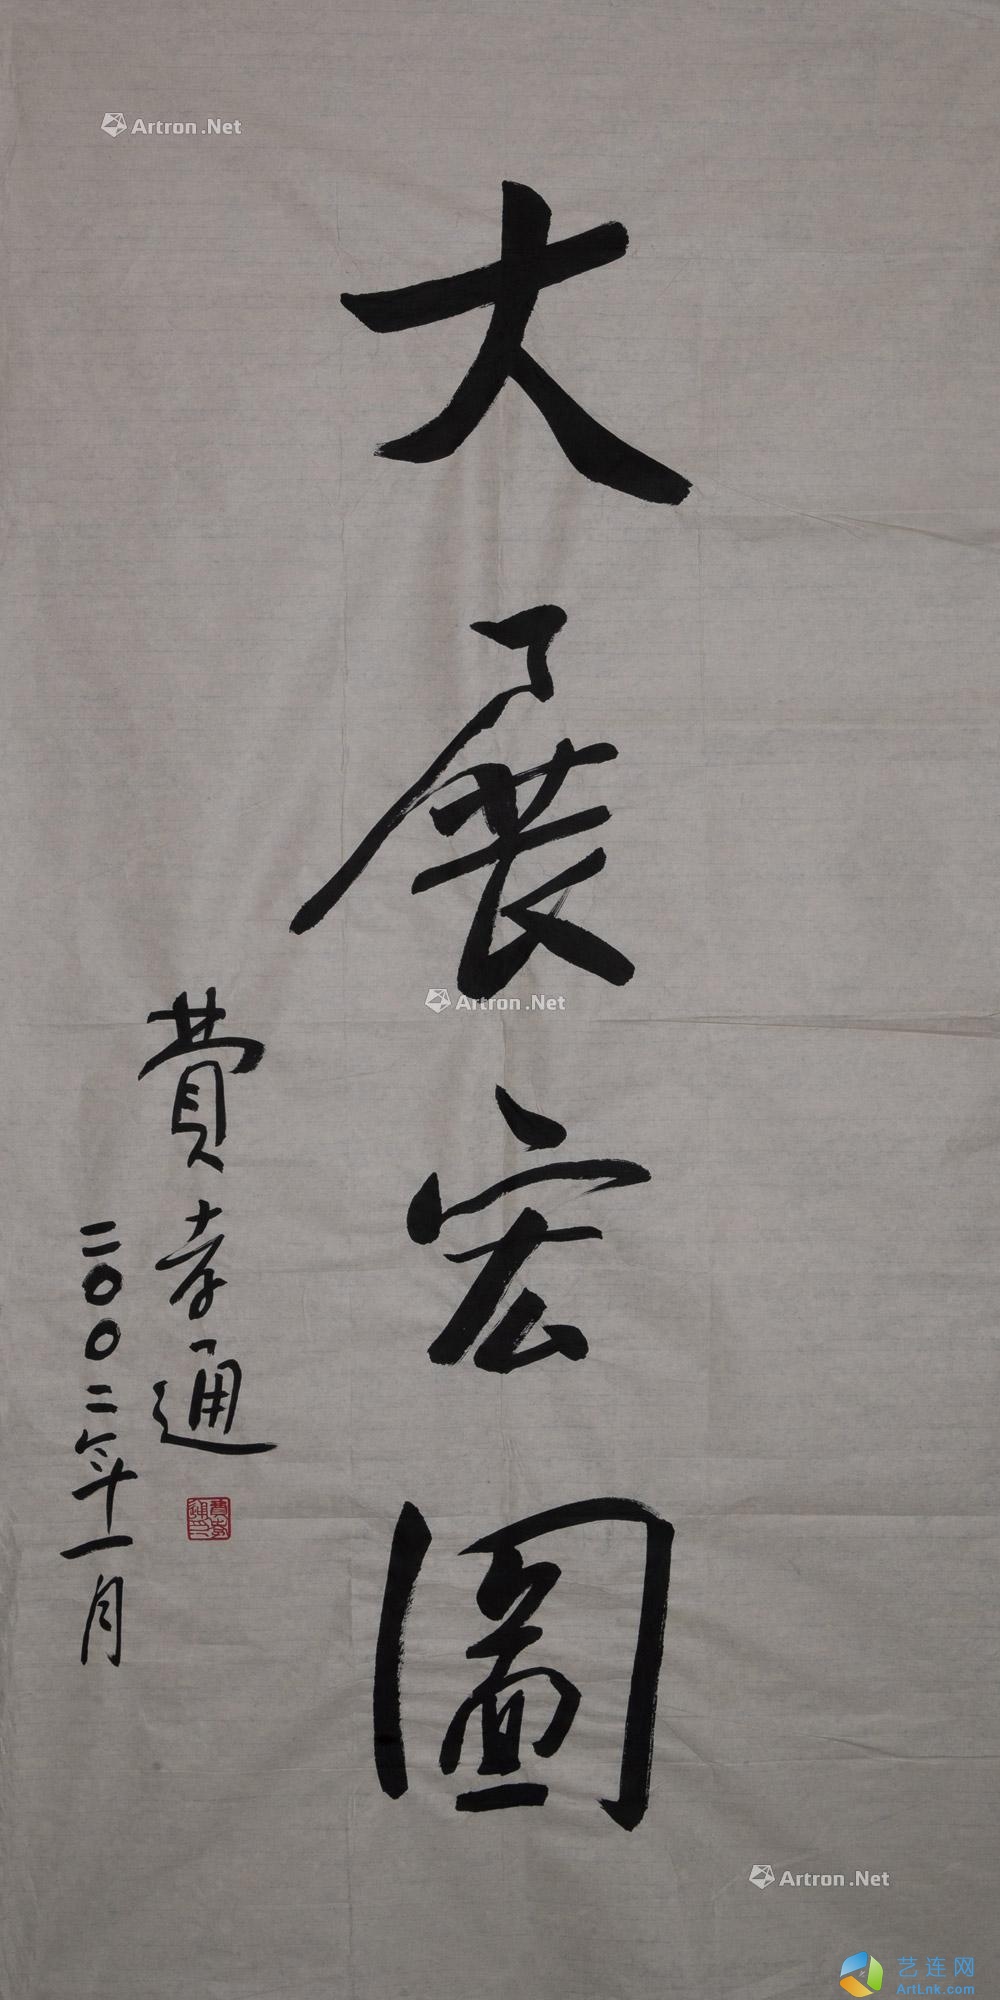 Artron.Net
大展宏圖
費孝通
二〇〇二年十一月
費孝通印
Artron.Net
Artron.Net
艺连网
ArtLnk.com